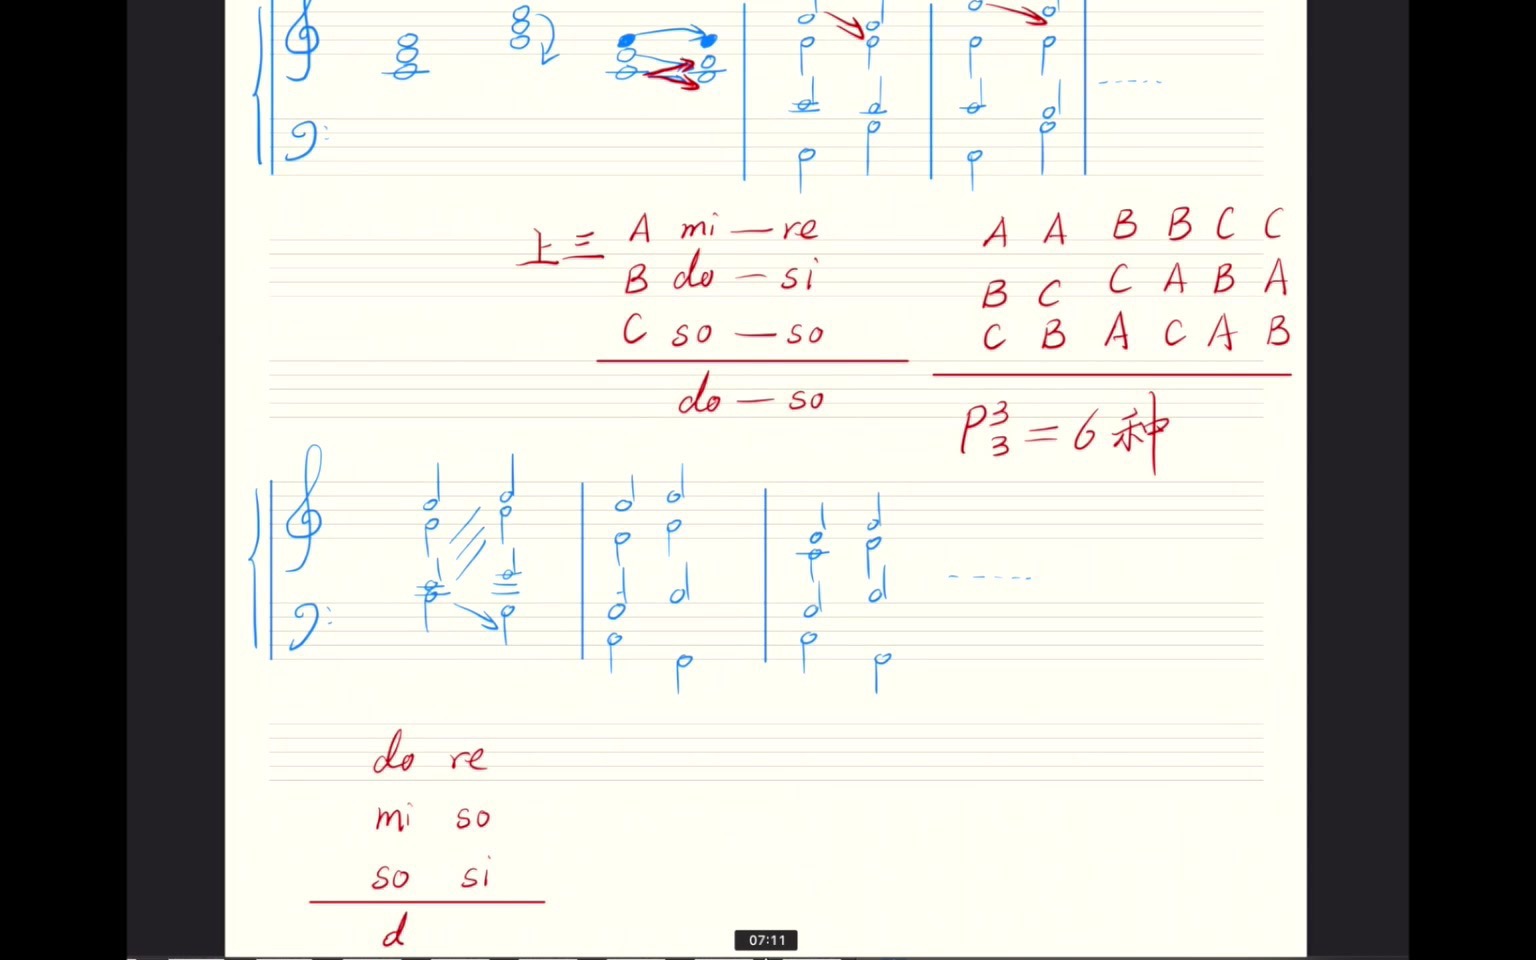 上三 A mi — re
B do — si
C so — so
do — so
A A B B C C
B C C A B A
C B A C A B
P³₃ = 6 种
do re
mi so
so si
d
07:11